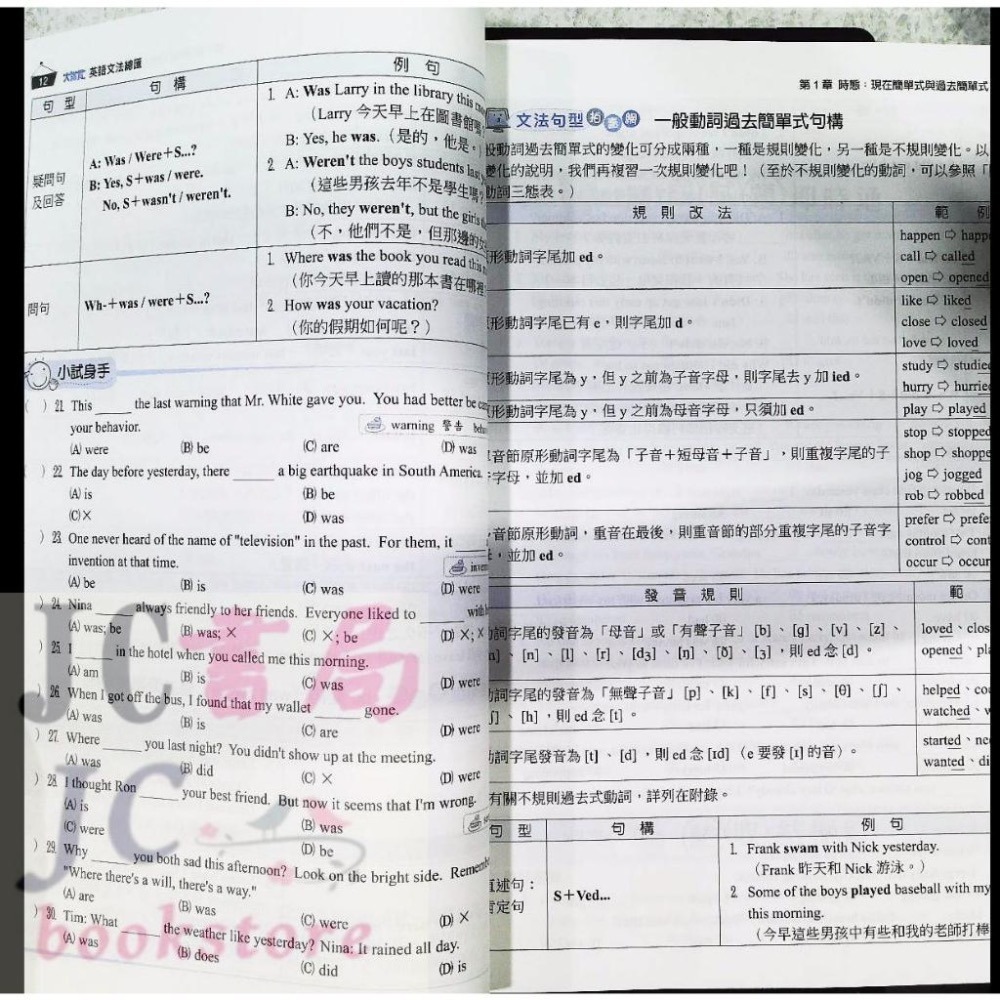 12 大滿貫 英語文法總匯
句 型
句 構
例 句
疑問句
及回答
A: Was / Were+S...?
B: Yes, S+was / were.
No, S+wasn't / weren't.
1. A: Was Larry in the library this
(Larry 今天早上在圖書館嗎
B: Yes, he was. (是的,他是。)
2. A: Weren't the boys students
(這些男孩去年不是學生嗎?
B: No, they weren't, but the girls
(不,他們不是,但那邊的
問句
Wh-+was / were+S...?
1. Where was the book you read this
(你今天早上讀的那本書在哪裡
2. How was your vacation?
(你的假期如何呢?)
小試身手
( ) 21. This ____ the last warning that Mr. White gave you. You had better be
your behavior.
warning 警告
(A) were (B) be (C) are (D) was
( ) 22. The day before yesterday, there ____ a big earthquake in South America.
(A) is (B) be
(C) × (D) was
) 23. One never heard of the name of "television" in the past. For them, it ____
invention at that time.
(A) be (B) is (C) was (D) were
) 24. Nina ____ always friendly to her friends. Everyone liked to ____ with
(A) was; be (B) was; × (C) ×; be (D) ×; ×
) 25. I ____ in the hotel when you called me this morning.
(A) am (B) is (C) was (D) were
) 26. When I got off the bus, I found that my wallet ____ gone.
(A) was (B) is (C) are (D) were
) 27. Where ____ you last night? You didn't show up at the meeting.
(A) was (B) did (C) × (D) were
) 28. I thought Ron ____ your best friend. But now it seems that I'm wrong.
(A) is (B) was
(C) were (D) be
) 29. Why ____ you both sad this afternoon? Look on the bright side. Remember
"Where there's a will, there's a way."
(A) are (B) was (C) were (D) ×
) 30. Tim: What ____ the weather like yesterday? Nina: It rained all day.
(A) was (B) does (C) did (D) is
第 1 章 時態:現在簡單式與過去簡單式
文法句型 一般動詞過去簡單式句構
動詞過去簡單式的變化可分成兩種,一種是規則變化,另一種是不規則變化。以
變化的說明,我們再複習一次規則變化吧!(至於不規則變化的動詞,可以參照「
動詞三態表。)
規 則 改 法
範 例
形動詞字尾加 ed。
happen ⇨
call ⇨ called
open ⇨ opened
形動詞字尾已有 e,則字尾加 d。
like ⇨ liked
close ⇨ closed
love ⇨ loved
形動詞字尾為 y,但 y 之前為子音字母,則字尾去 y 加 ied。
study ⇨ studied
hurry ⇨ hurried
形動詞字尾為 y,但 y 之前為母音字母,只須加 ed。
play ⇨ played
音節原形動詞字尾為「子音+短母音+子音」,則重複字尾的子
字母,並加 ed。
stop ⇨ stopped
shop ⇨
jog ⇨ jogged
rob ⇨ robbed
音節原形動詞,重音在最後,則重音節的部分重複字尾的子音字
,並加 ed。
prefer ⇨
control ⇨
occur ⇨
發 音 規 則
範
詞字尾的發音為「母音」或「有聲子音」[b]、[g]、[v]、[z]、
、[n]、[l]、[r]、[dʒ]、[ŋ]、[ð]、[ʒ],則 ed 念 [d]。
loved、
opened、
詞字尾的發音為「無聲子音」[p]、[k]、[f]、[s]、[θ]、[ʃ]、
、[h],則 ed 念 [t]。
helped、
watched、
詞字尾發音為 [t]、[d],則 ed 念 [ɪd](e 要發 [ɪ] 的音)。
started、
wanted、
有關不規則過去式動詞,詳列在附錄。
句 型
句 構
例 句
直述句:
肯定句
S+Ved...
1. Frank swam with Nick yesterday.
(Frank 昨天和 Nick 游泳。)
2. Some of the boys played baseball with my
this morning.
(今早這些男孩中有些和我的老師打棒
JC書局
JC
bookstore